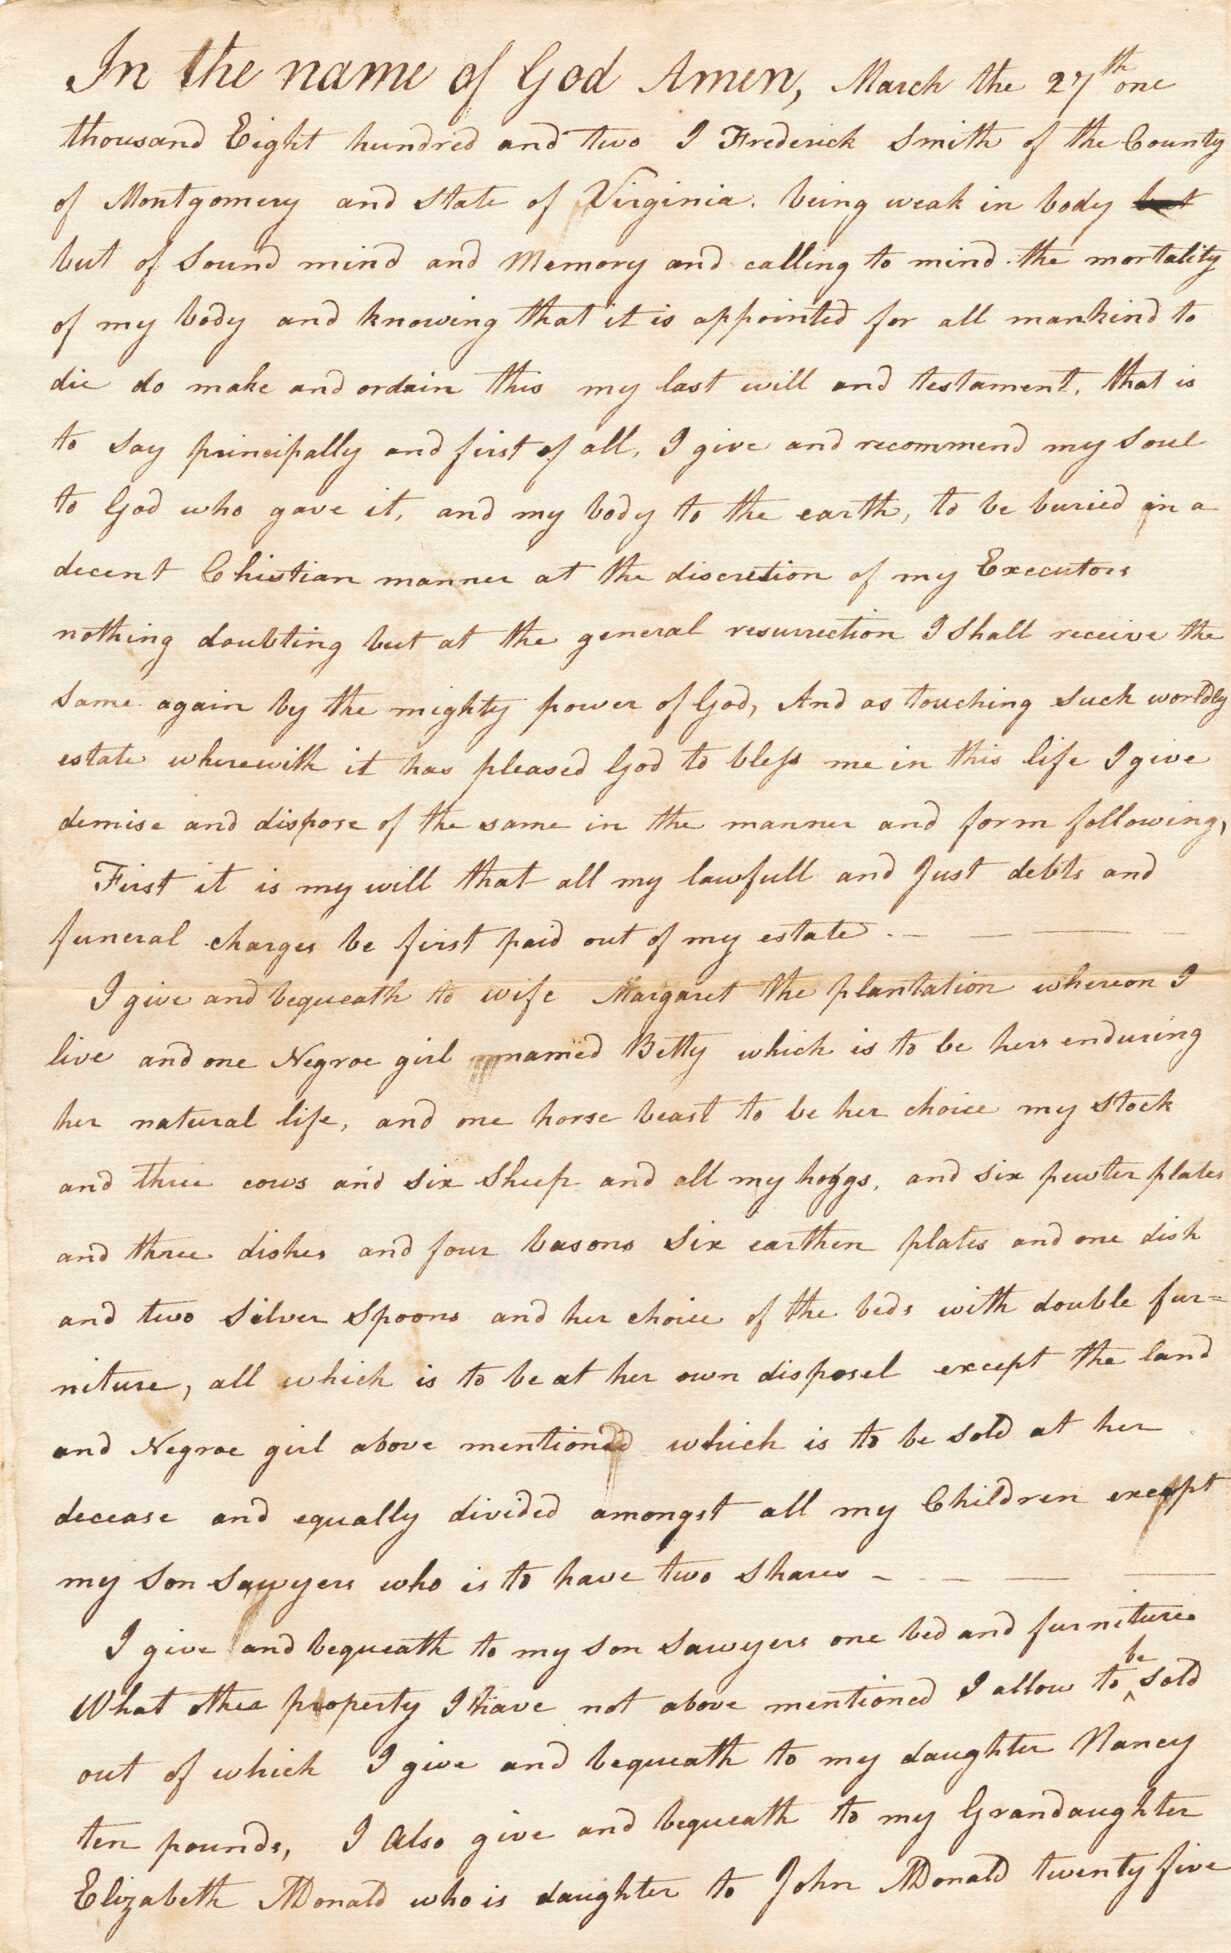 In the name of God Amen, March the 27th one
thousand Eight hundred and two I Frederick Smith of the County
of Montgomery and state of Virginia. being weak in body but
but of Sound mind and Memory and calling to mind the mortality
of my body and knowing that it is appointed for all mankind to
die do make and ordain this my last will and testament, that is
to say principally and first of all, I give and recommend my Soul
to God who gave it, and my body to the earth, to be buried in a
decent Chistian manner at the discretion of my Executors
nothing doubting but at the general resurrection I Shall receive the
same again by the mighty power of God, And as touching such worldly
estate wherewith it has pleased God to bless me in this life I give
demise and dispose of the same in the manner and form following,
First it is my will that all my lawfull and Just debts and
funeral charges be first paid out of my estate. — — — —
I give and bequeath to wife Margaret the plantation whereon I
live and one Negroe girl named Betty which is to be hers enduring
her natural life, and one horse beast to be her choice my stock
and three cows and six Sheep and all my hoggs, and six pewter plates
and three dishes and four basons six earthen plates and one dish
and two Silver Spoons and her choice of the beds with double fur=
niture, all which is to be at her own disposel except the land
and Negroe girl above mentioned which is to be sold at her
decease and equally divided amongst all my Children except
my son Sawyers who is to have two shares — — — —
I give and bequeath to my son Sawyers one bed and furniture
What other property I have not above mentioned I allow to ^be sold
out of which I give and bequeath to my daughter Nancy
ten pounds, I Also give and bequeath to my Grandaughter
Elizabeth McDonald who is daughter to John McDonald twenty five